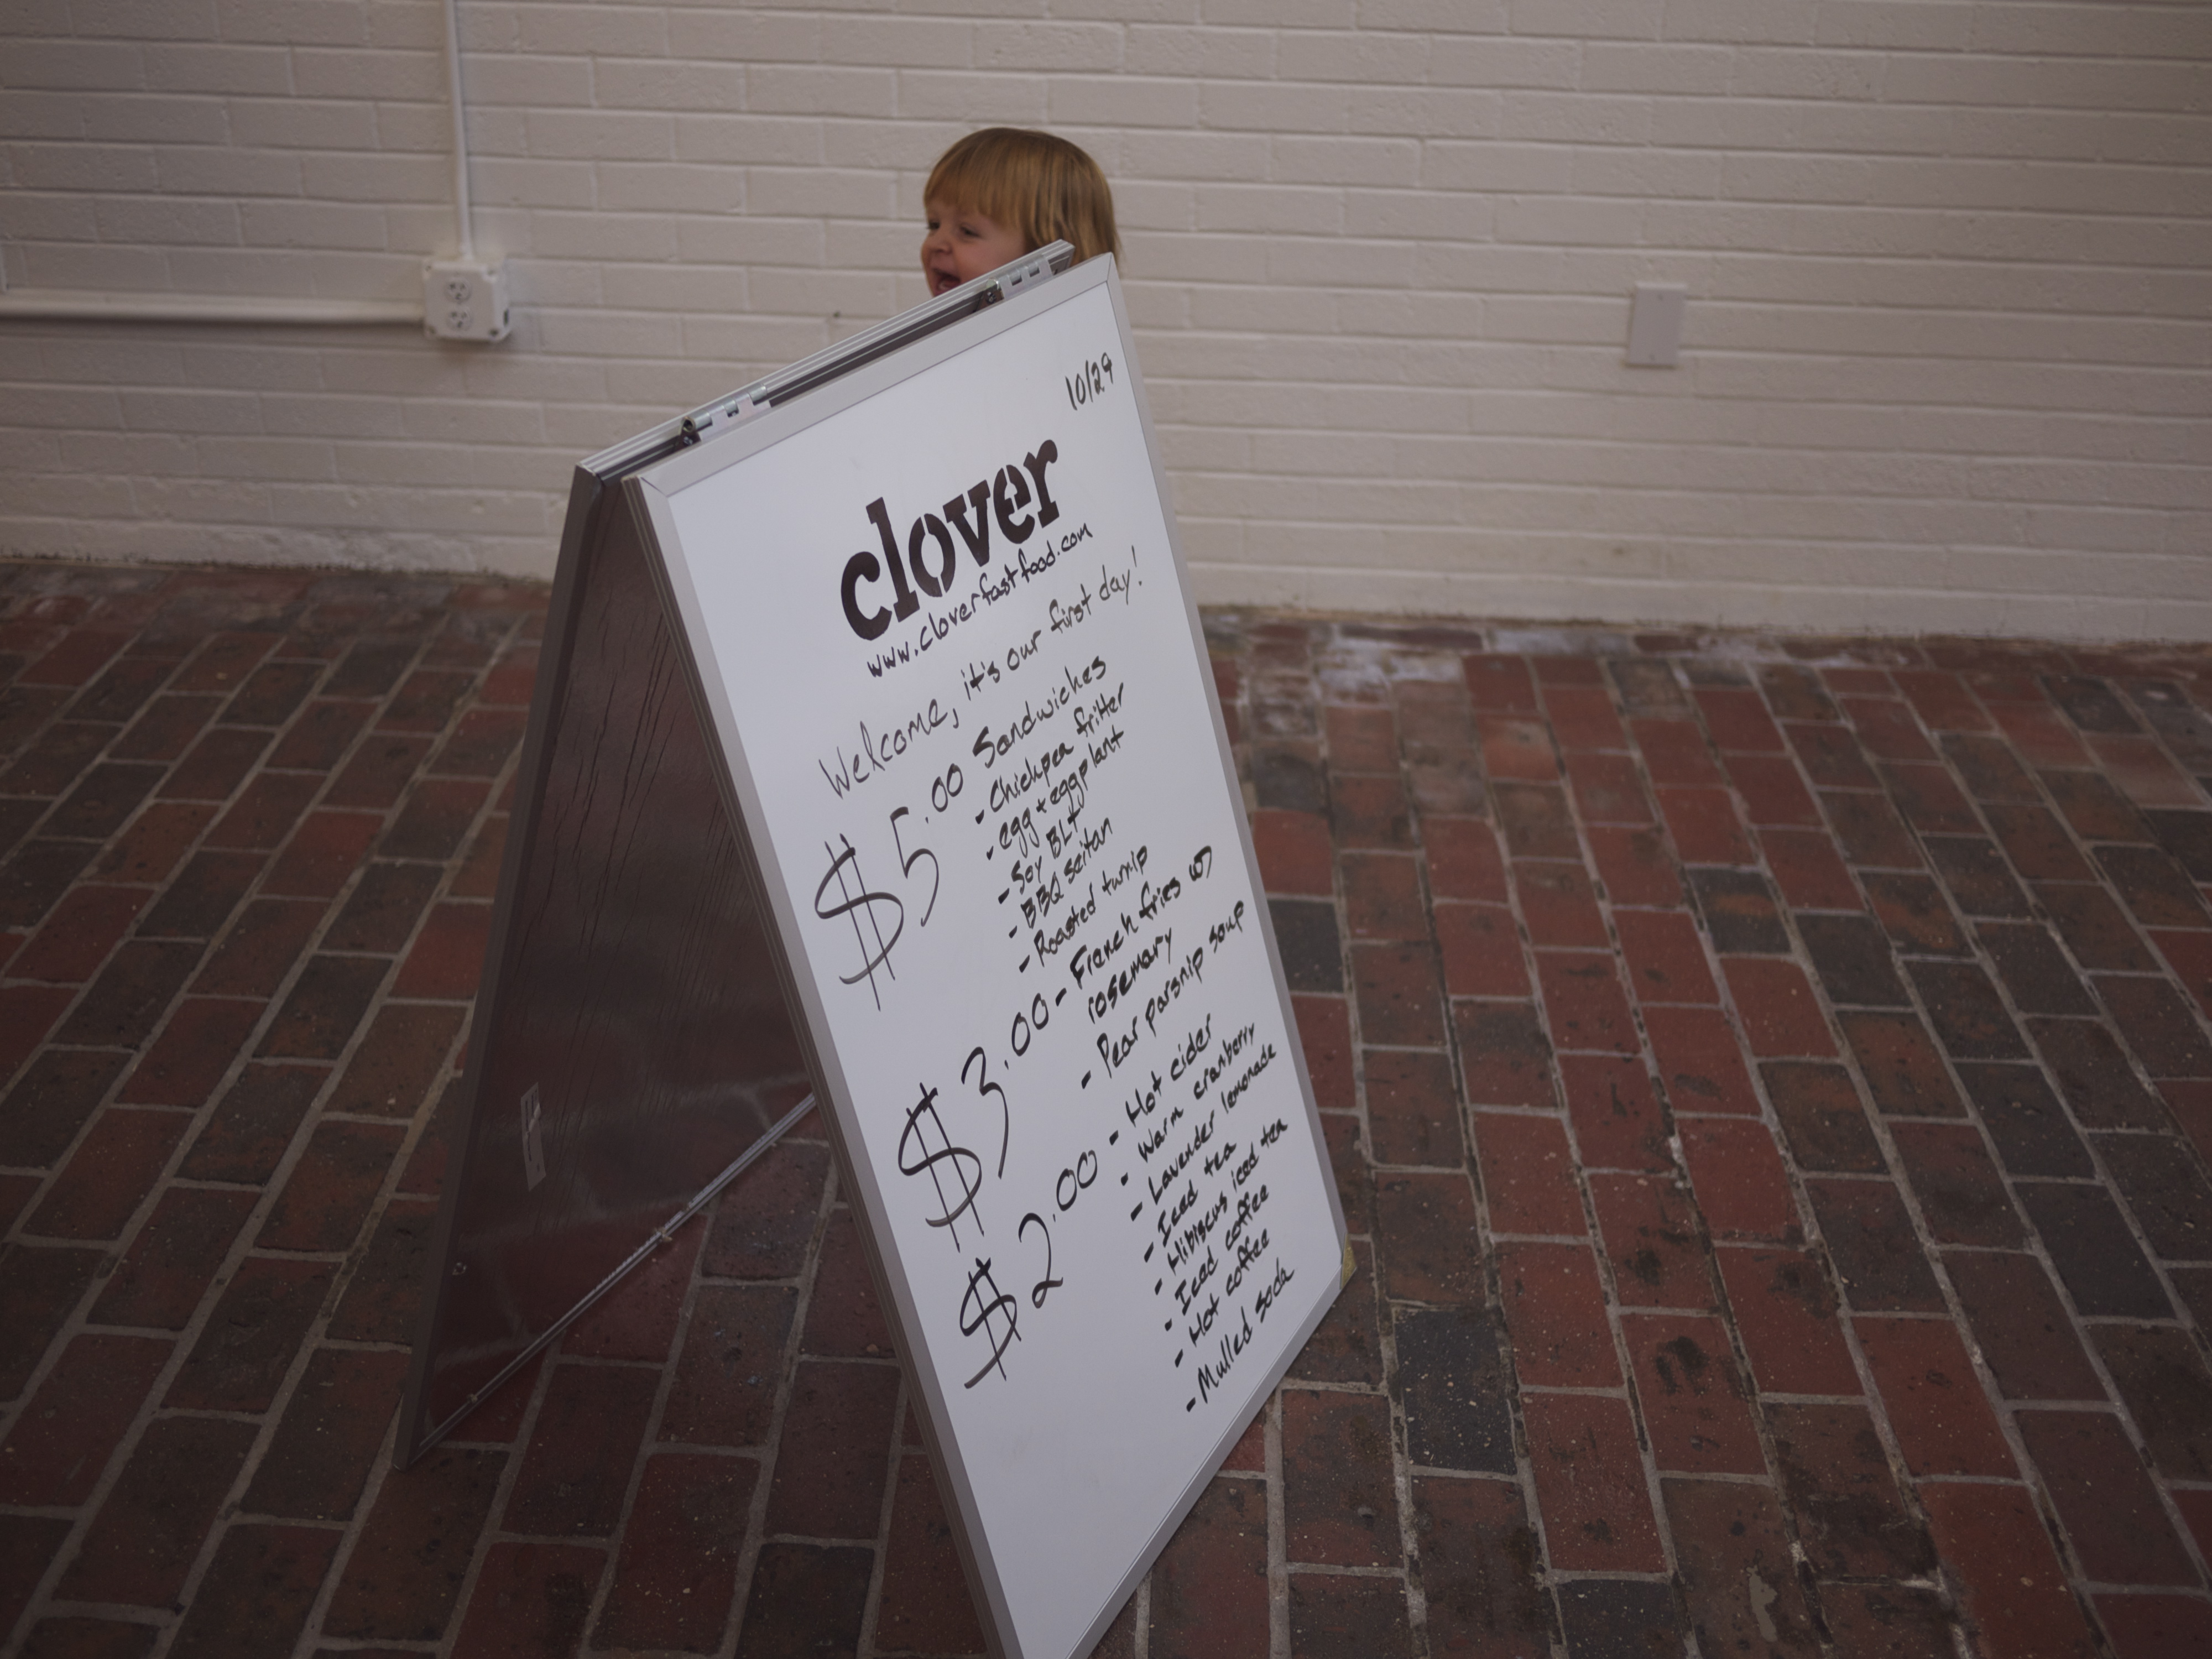 10/29
clover
www.cloverfastfood.com
Welcome, it's our first day!
$5.00 Sandwiches
- Chickpea fritter
- egg + eggplant
- Soy BLT
- BBQ seitan
- Roasted turnip
$3.00 - French fries w/
rosemary
- Pear parsnip soup
$2.00 - Hot cider
- Warm cranberry
- Lavender lemonade
- Iced tea
- Hibiscus iced tea
- Iced coffee
- Hot coffee
- Mulled soda